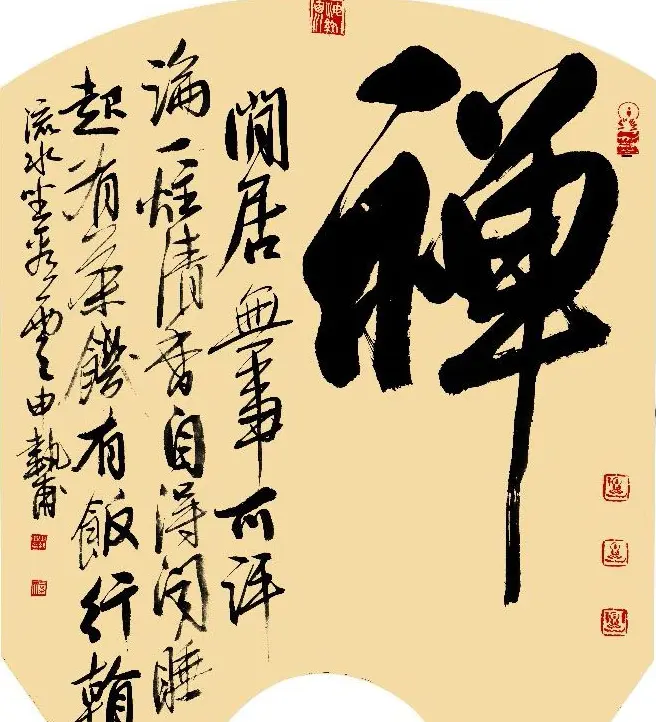 禅
閒居無事可評
論一炷清香自得聞睡
起有茶饑有飯行看
流水坐看雲 申執甫